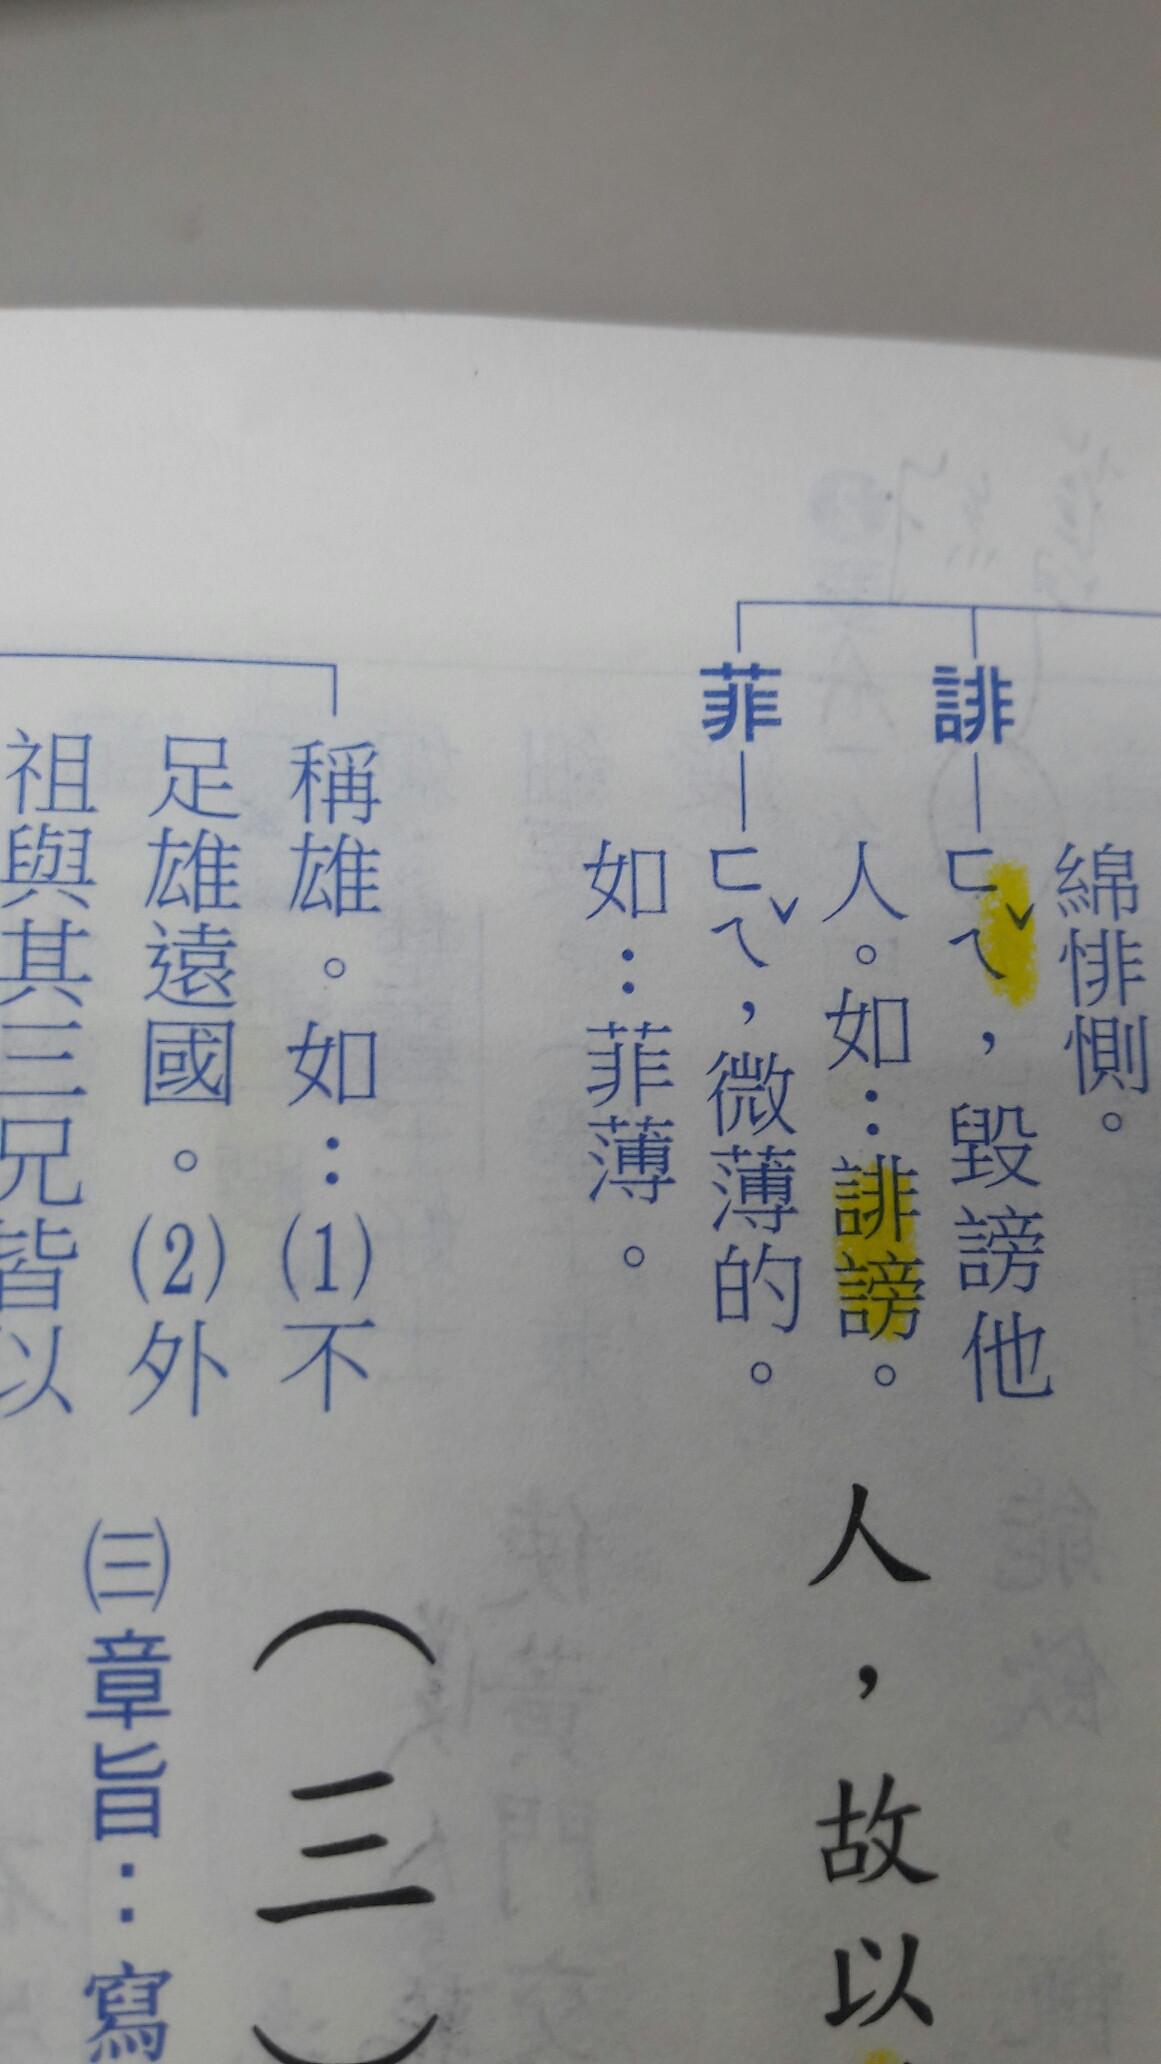 綿悱惻。
誹—ㄈㄟˇ，毀謗他
人。如：誹謗。
菲—ㄈㄟˇ，微薄的。
如：菲薄。
稱雄。如：(1)不
足雄遠國。(2)外
祖與其三兄皆以
人，故以
（三）
㈢章旨：寫